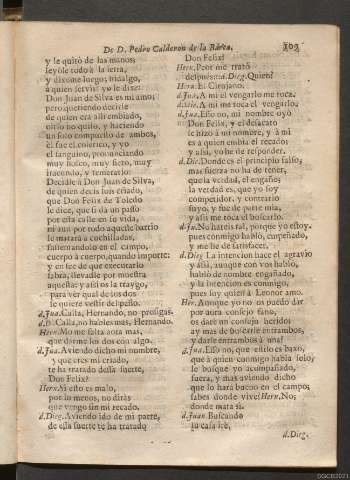 De D. Pedro Calderon de la Barca.
109
y le quitò de las manos;
leyóle todo à la letra,
y dixome luego; hidalgo,
à quien servis? yo le dixe:
Don Juan de Silva es mi amo;
pero queriendo decirle
de quien era alli embiado,
oirlo no quiso, y haciendo
un solo compuesto de ambos,
èl fue el colerico, y yo
el sanguino, pronunciando
muy hosco, muy fiero, muy
iracundo, y temerario:
Decidle à Don Juan de Silva,
de quien decis sois criado,
que Don Felix de Toledo
le dice, que si dà un passo
por esta calle en su vida,
ni aun por todo aqueste barrio
le matarà à cuchilladas,
sustentandolo en el campo,
cuerpo à cuerpo, quando importe;
y en fee de que executarlo
sabrà, llevadle por muestra
aquestas; y assi os la traygo,
para ver qual de los dos
le quiere vestir de passo.
d.Jua. Calla, Hernando, no prosigas.
d.D. Calla, no hables mas, Hernando.
Hern. No me falta aora mas,
que darme los dos con algo.
d.Jua. Aviendo dicho mi nombre,
y que eres mi criado,
te ha tratado dessa suerte,
Don Felix?
Hern. Si esto es malo,
por lo menos, no diràs
que vengo sin mi recado.
d.Dieg. Aviendo ido de mi parte,
de essa suerte te ha tratado
Don Felix?
Hern. Peor me tratò
despues.
d.Dieg. Quien?
Hern. El Cirujano.
d.Jua. A mi el vengarlo me toca.
d.Die. A mi me toca el vengarlo.
d.Jua. Esso no, mi nombre oyò
Don Felix, y el desacato
le hizo à mi nombre, y à mi
es à quien embia el recado:
y assi, yo he de responder.
d.Die. Donde es el principio falso,
mas fuerza no ha de tener,
que la verdad, el engaño;
la verdad es, que yo soy
competidor, y contrario
suyo, y fue de parte mia,
y assi me toca el buscarlo.
d.Ju. No hareis tal, porque yo estoy,
pues conmigo hablò, empeñado,
y me he de satisfacer.
d.Dieg. La intencion hace el agravio
y assi, aunque con vos hablò,
hablò de nombre engañado,
y la intencion es conmigo,
pues soy quien à Leonor amo.
Her. Aunque yo no os puedo dar
por aora consejo sano,
os darè un consejo: heridos
ay mas de buscarle entrambos,
y darle entrambos à una?
d.Jua. Esso no, que estilo es baxo,
que à quien conmigo habla solo,
le busque yo acompañado,
fuera, y mas aviendo dicho
que lo harà bueno en el campo;
sabes donde vive?
Hern. No;
donde mata si.
d.Juan. Buscando
su casa irè,
d.Dieg.